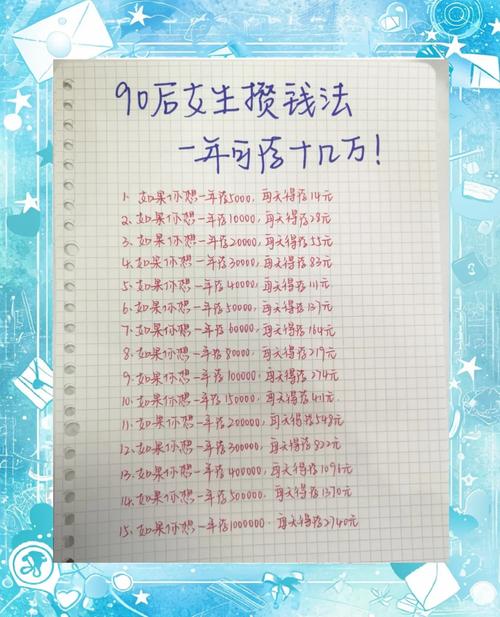 90后女生攒钱法
一年可存十几万!
1. 如果你想一年存5000,每天得存14元
2. 如果你想一年存10000,每天得存28元
3. 如果你想一年存20000,每天得存55元
4. 如果你想一年存30000,每天得存83元
5. 如果你想一年存40000,每天得存111元
6. 如果你想一年存50000,每天得存137元
7. 如果你想一年存60000,每天得存164元
8. 如果你想一年存80000,每天得存219元
9. 如果你想一年存100000,每天得存274元
10. 如果你想一年存150000,每天得存411元
11. 如果你想一年存200000,每天得存548元
12. 如果你想一年存300000,每天得存822元
13. 如果你想一年存400000,每天得存1096元
14. 如果你想一年存500000,每天得存1370元
15. 如果你想一年存1000000,每天得存2740元